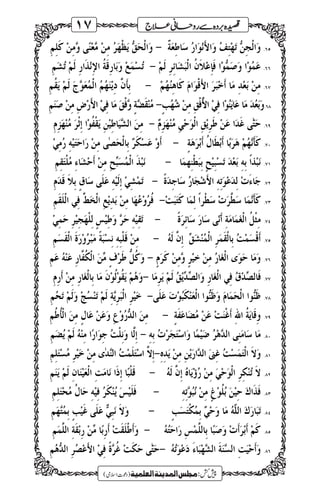 قصیدہ بردہ سے روحانی علاج ۱۷
۶۵ وَالْجِنُّ تَهْتِفُ وَالْاَنْوَارُ سَاطِعَةٌ – وَالْحَقُّ يَظْهَرُ مِنْ مَّعْنًى وَّمِنْ كَلِمِ
۶۶ عَمُوْا وَصَمُّوْا فَاِعْلَانُ الْبَشَائِرِ لَمْ – تُسْمَعْ وَبَارِقَةُ الْاِنْذَارِ لَمْ تُشَمِ
۶۷ مِنْ بَعْدِ مَا اَخْبَرَ الْاَقْوَامَ كَاهِنُهُمْ – بِاَنَّ دِيْنَهُمُ الْمُعْوَجَّ لَمْ يَقُمِ
۶۸ وَبَعْدَ مَا عَايَنُوْا فِي الْاُفُقِ مِنْ شُهُبٍ – مُنْقَضَّةٍ وَّفْقَ مَا فِي الْاَرْضِ مِنْ صَنَمِ
۶۹ حَتّٰى غَدَا عَنْ طَرِيْقِ الْوَحْيِ مُنْهَزِمٌ – مِنَ الشَّيَاطِيْنِ يَقْفُوْ اِثْرَ مُنْهَزِمِ
۷۰ كَاَنَّهُمْ هَرَبًا اَبْطَالُ اَبْرَهَةٍ – اَوْ عَسْكَرٌ بِالْحَصٰى مِنْ رَاحَتَيْهِ رُمِيْ
۷۱ نَبْذًا بِهٖ بَعْدَ تَسْبِيْحٍ بِبَطْنِهِمَا – نَبْذَ الْمُسَبِّحِ مِنْ اَحْشَاءِ مُلْتَقِمِ
۷۲ جَاءَتْ لِدَعْوَتِهِ الْاَشْجَارُ سَاجِدَةً – تَمْشِيْ اِلَيْهِ عَلٰى سَاقٍ بِلَا قَدَمِ
۷۳ كَاَنَّمَا سَطَرَتْ سَطْرًا لِمَا كَتَبَتْ – فُرُوْعُهَا مِنْ بَدِيْعِ الْخَطِّ فِي اللَّقَمِ
۷۴ مِثْلُ الْغَمَامَةِ اَنّٰى سَارَ سَائِرَةً – تَقِيْهِ حَرَّ وَطِيْسٍ لِلْهَجِيْرِ حَمِيْ
۷۵ اَقْسَمْتُ بِالْقَمَرِ الْمُنْشَقِّ اِنَّ لَهٗ – مِنْ قَلْبِهٖ نِسْبَةً مَبْرُوْرَةَ الْقَسَمِ
۷۶ وَمَا حَوَى الْغَارُ مِنْ خَيْرٍ وَّمِنْ كَرَمٍ – وَكُلُّ طَرْفٍ مِّنَ الْكُفَّارِ عَنْهُ عَمِ
۷۷ فَالصِّدْقُ فِي الْغَارِ وَالصِّدِّيْقُ لَمْ يَرِمَا – وَهُمْ يَقُوْلُوْنَ مَا بِالْغَارِ مِنْ اَرِمِ
۷۸ ظَنُّوا الْحَمَامَ وَظَنُّوا الْعَنْكَبُوْتَ عَلٰى – خَيْرِ الْبَرِيَّةِ لَمْ تَنْسُجْ وَلَمْ تَحُمِ
۷۹ وِقَايَةُ اللهِ اَغْنَتْ عَنْ مُّضَاعَفَةٍ – مِنَ الدُّرُوْعِ وَعَنْ عَالٍ مِّنَ الْاُطُمِ
۸۰ مَا سَامَنِي الدَّهْرُ ضَيْمًا وَّاسْتَجَرْتُ بِهٖ – اِلَّا وَنِلْتُ جِوَارًا مِّنْهُ لَمْ يُضَمِ
۸۱ وَلَا الْتَمَسْتُ غِنَى الدَّارَيْنِ مِنْ يَدِهٖ – اِلَّا اسْتَلَمْتُ النَّدٰى مِنْ خَيْرِ مُسْتَلَمِ
۸۲ لَا تُنْكِرِ الْوَحْيَ مِنْ رُؤْيَاهُ اِنَّ لَهٗ – قَلْبًا اِذَا نَامَتِ الْعَيْنَانِ لَمْ يَنَمِ
۸۳ فَذَاكَ حِيْنَ بُلُوْغٍ مِّنْ نُّبُوَّتِهٖ – فَلَيْسَ يُنْكَرُ فِيْهِ حَالُ مُحْتَلِمِ
۸۴ تَبَارَكَ اللهُ مَا وَحْيٌ بِمُكْتَسَبٍ – وَلَا نَبِيٌّ عَلٰى غَيْبٍ بِمُتَّهَمِ
۸۵ كَمْ اَبْرَأَتْ وَصِبًا بِاللَّمْسِ رَاحَتُهٗ – وَاَطْلَقَتْ اَرِبًا مِّنْ رِّبْقَةِ اللَّمَمِ
۸۶ وَاَحْيَتِ السَّنَةَ الشَّهْبَاءَ دَعْوَتُهٗ – حَتّٰى حَكَتْ غُرَّةً فِي الْاَعْصُرِ الدُّهُمِ
پیش کش: مجلس المدینة العلمیة (دعوتِ اسلامی)